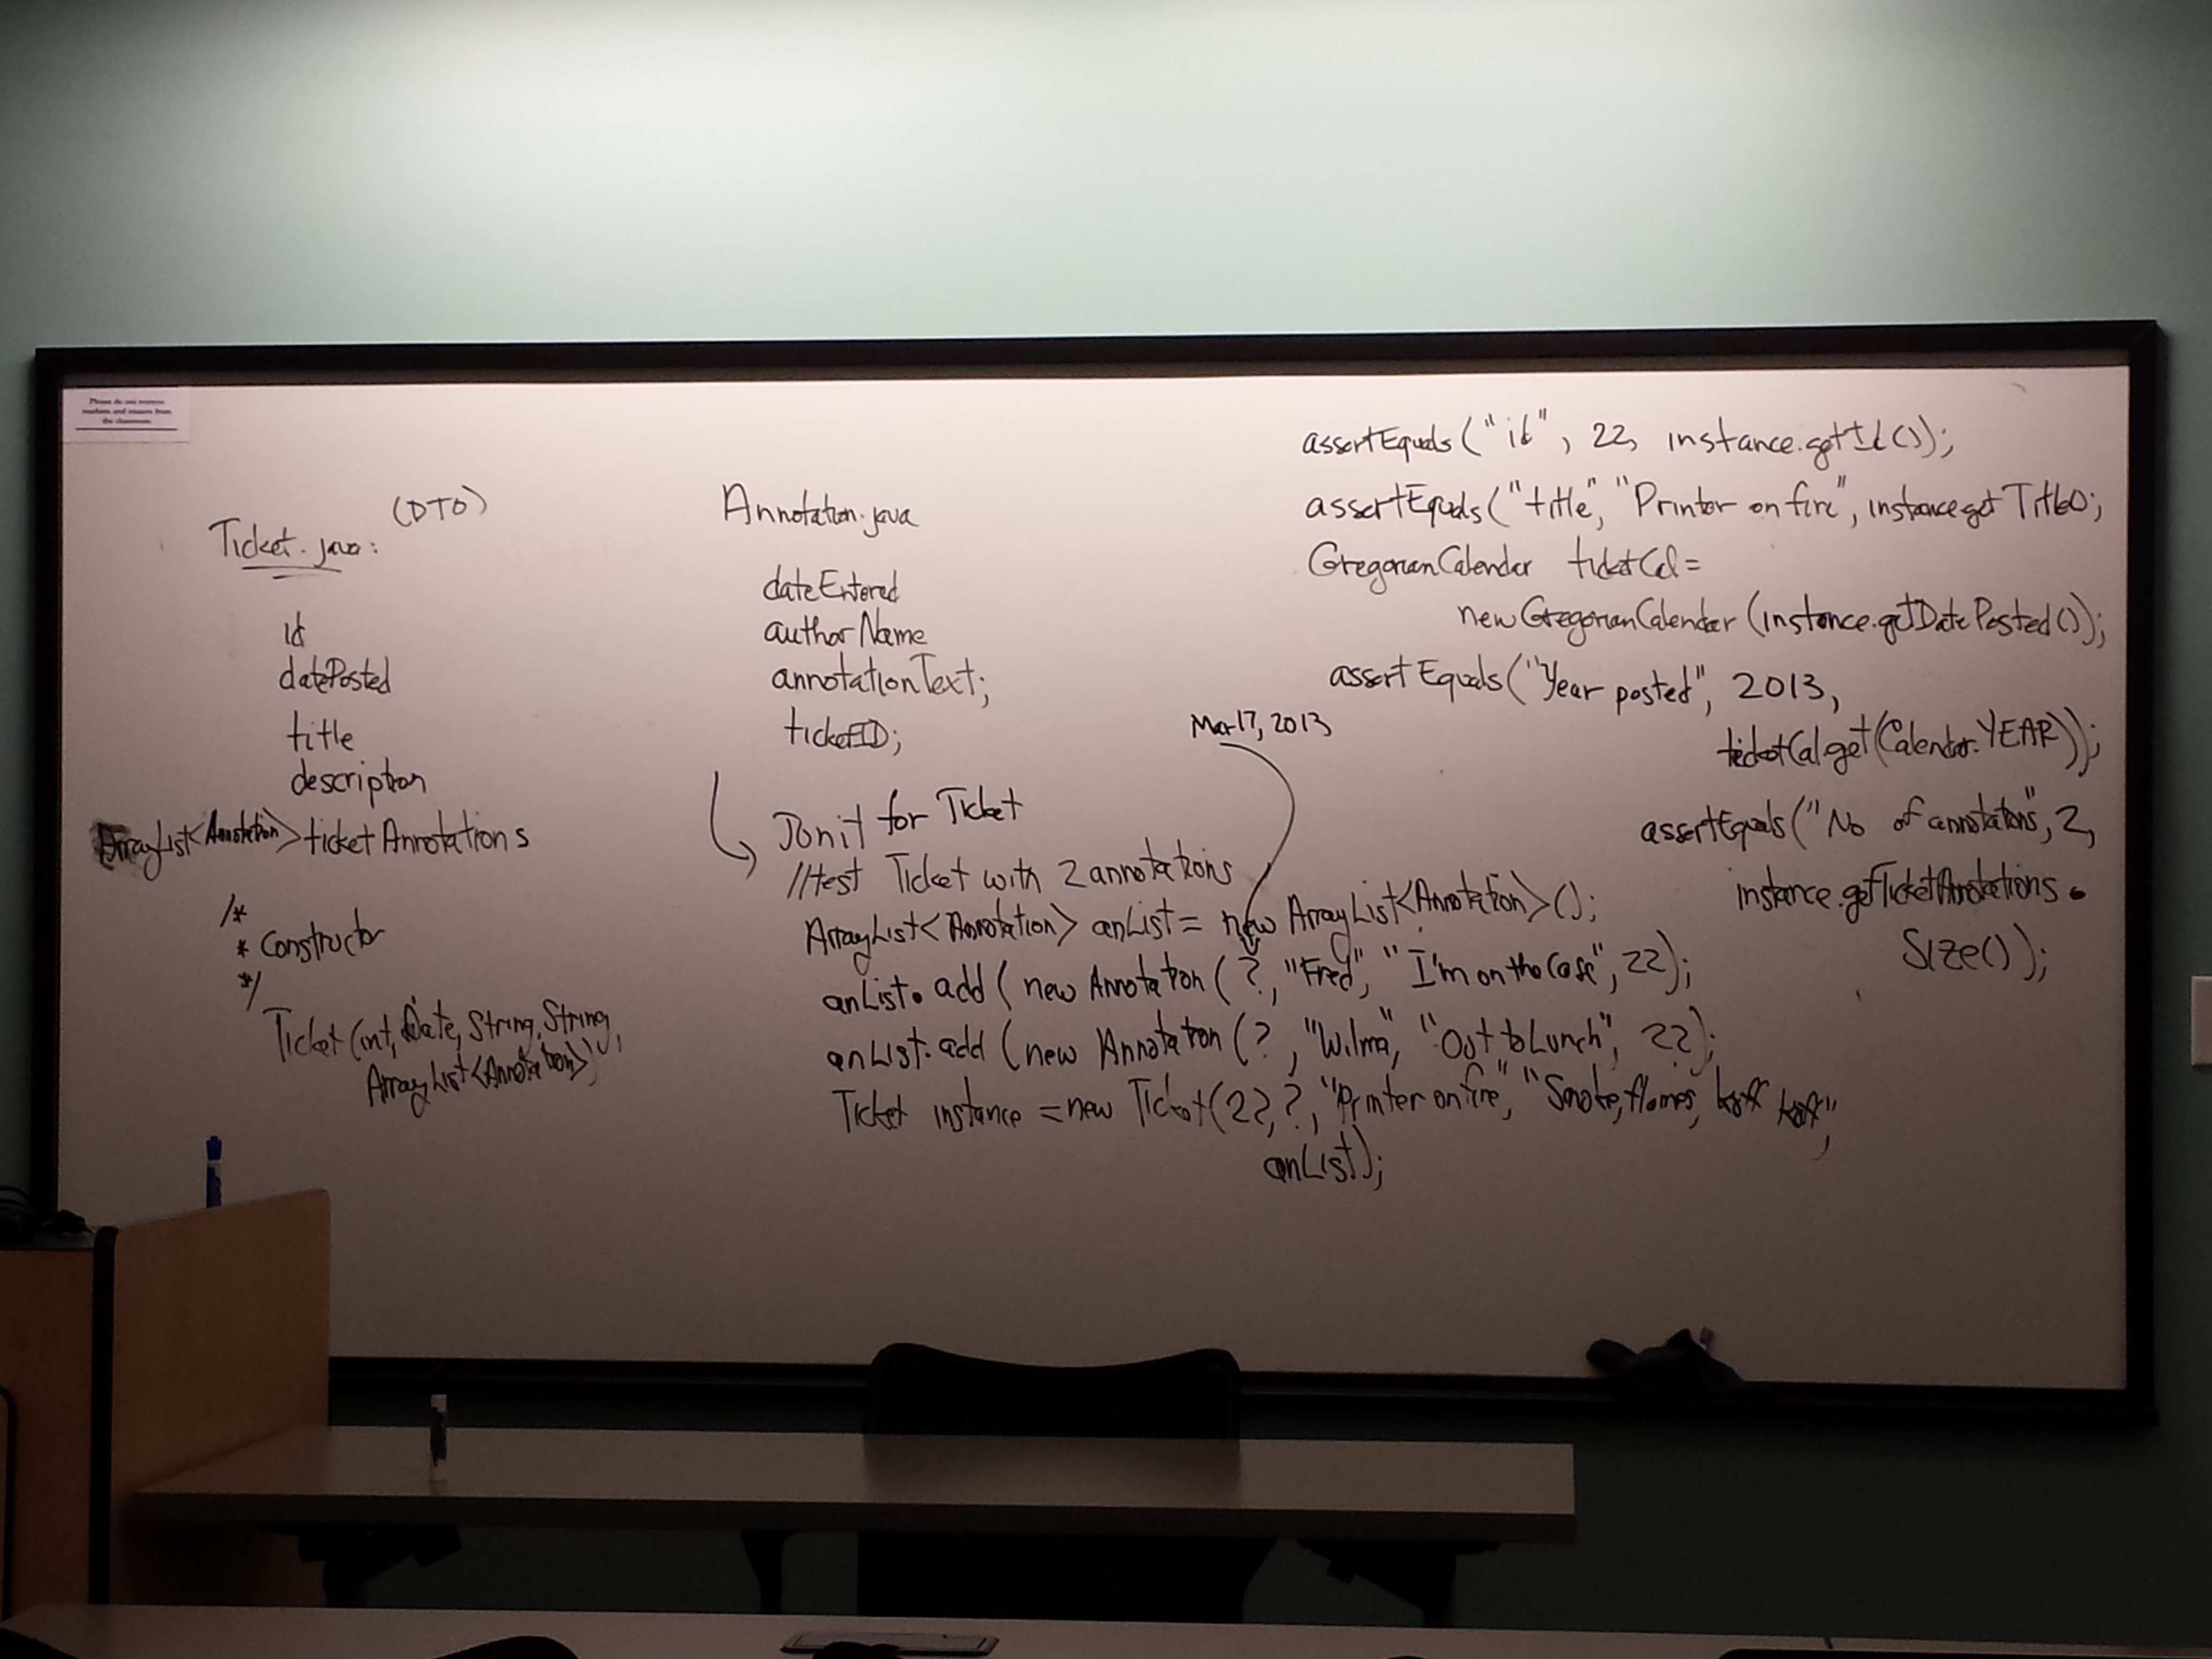 Please do not remove
markers and erasers from
the classroom.
(DTO)
Ticket.java:
id
datePosted
title
description
ArrayList<Annotation> ticketAnnotations
/*
* Constructor
*/
Ticket(int, Date, String, String,
ArrayList<Annotation>)
Annotation.java
dateEntered
authorName
annotationText;
ticketID;
JUnit for Ticket
//test Ticket with 2 annotations
Mar 17, 2013
ArrayList<Annotation> anList = new ArrayList<Annotation>();
anList.add(new Annotation(?, "Fred", "I'm on the case", 22);
anList.add(new Annotation(?, "Wilma", "Out to Lunch", 22);
Ticket instance = new Ticket(22, ?, "Printer on fire", "Smoke, flames, koff koff",
anList);
assertEquals("id", 22, instance.getId());
assertEquals("title", "Printer on fire", instance.getTitle();
GregorianCalendar ticketCal =
new GregorianCalendar(instance.getDatePosted());
assertEquals("Year posted", 2013,
ticketCal.get(Calendar.YEAR));
assertEquals("No of annotations", 2,
instance.getTicketAnnotations.
size());